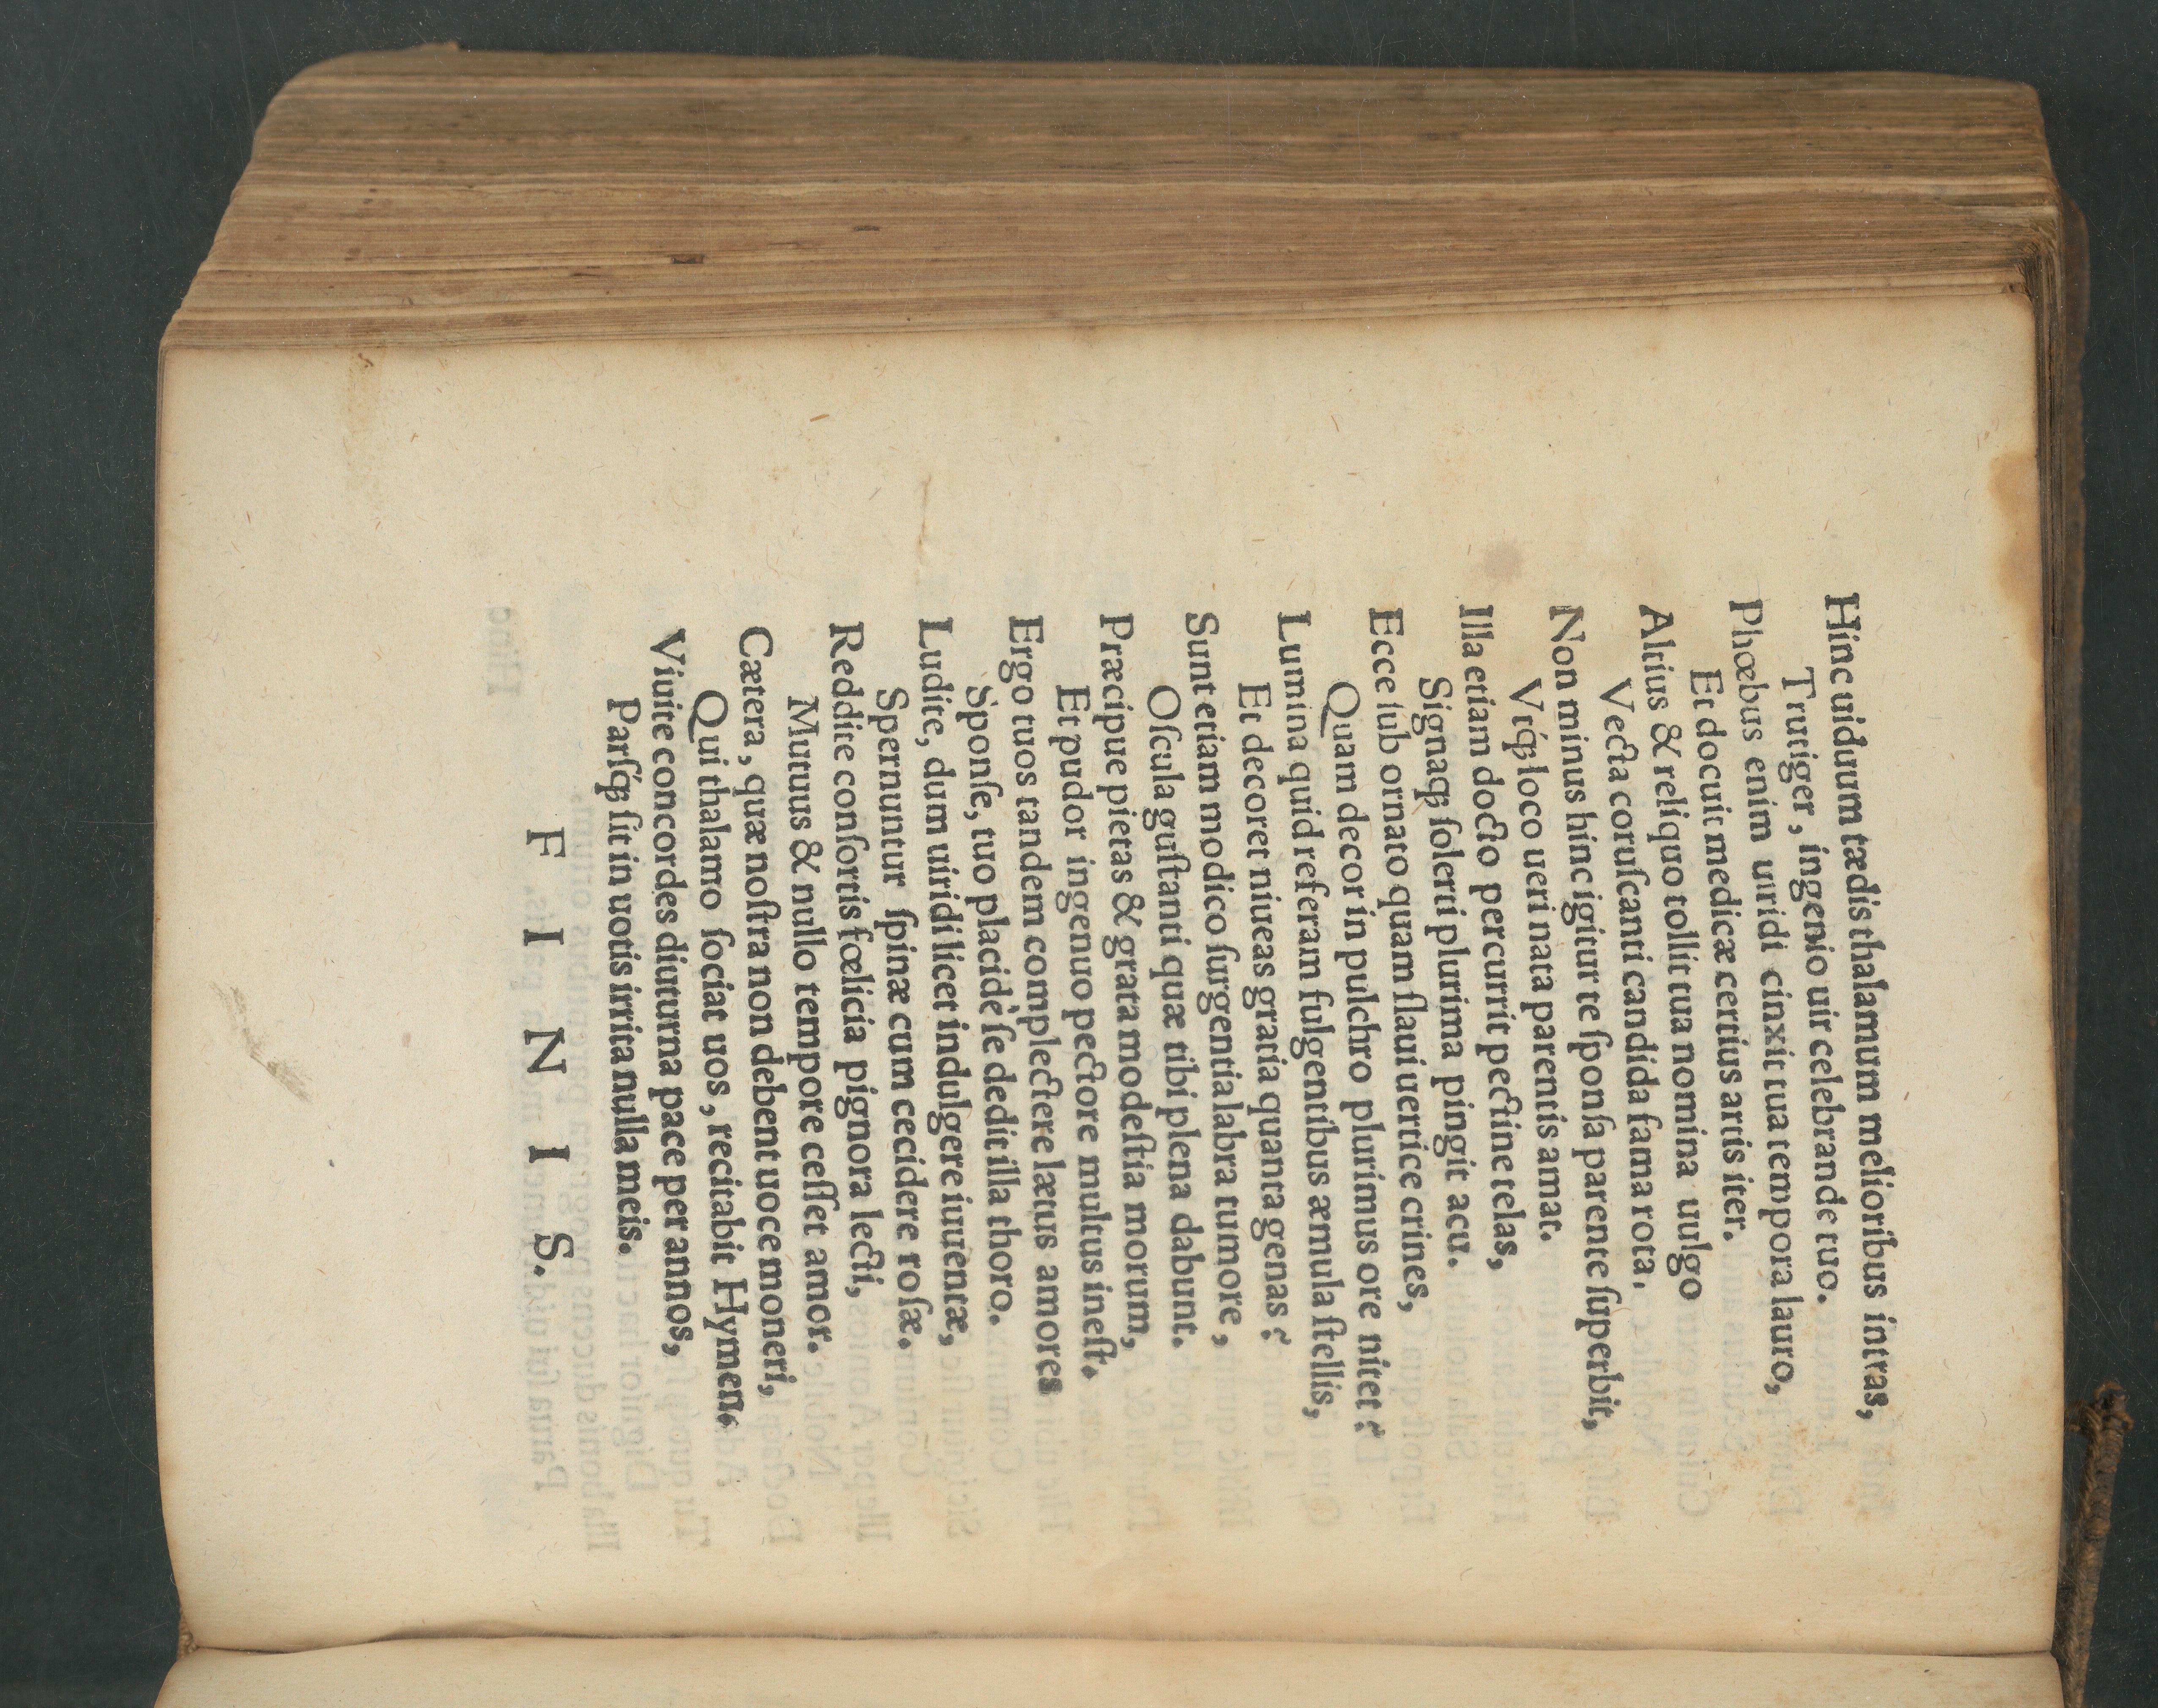 Hinc uiduum tædis thalamum melioribus intras,
Trutiger, ingenio uir celebrande tuo.
Phœbus enim uiridi cinxit tua tempora lauro,
Et docuit medicæ certius artis iter.
Altius & reliquo tollit tua nomina uulgo
Vecta coruſcanti candida fama rota.
Non minus hinc igitur te ſponſa parente ſuperbit,
Vtq́ꝫ loco ueri nata parentis amat.
Illa etiam docto percurrit pectine telas,
Signaqꝫ ſolerti plurima pingit acu.
Ecce ſub ornato quam flaui uertice crines,
Quam decor in pulchro plurimus ore nitet?
Lumina quid referam fulgentibus æmula ſtellis,
Et decoret niueas gratia quanta genas?
Sunt etiam modico ſurgentia labra tumore,
Oſcula guſtanti quæ tibi plena dabunt.
Præcipue pietas & grata modeſtia morum,
Et pudor ingenuo pectore multus ineſt.
Ergo tuos tandem complectere lætus amores
Sponſe, tuo placidè ſe dedit illa thoro.
Ludite, dum uiridi licet indulgere iuuentæ,
Spernuntur ſpinæ cum cecidere roſæ.
Reddite conſortis fœlicia pignora lecti,
Mutuus & nullo tempore ceſſet amor.
Cætera, quæ noſtra non debent uoce moneri,
Qui thalamo ſociat uos, recitabit Hymen.
Viuite concordes diuturna pace per annos,
Parſq́ꝫ ſit in uotis irrita nulla meis.
F I N I S.